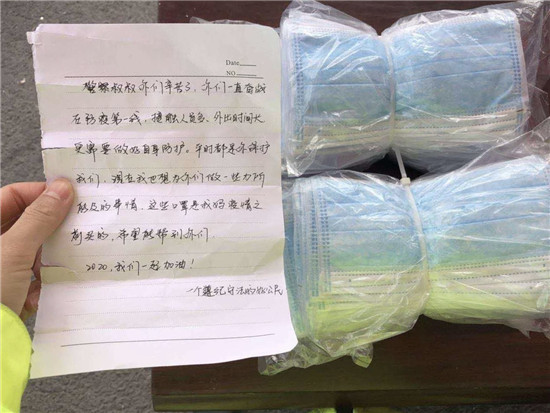 Date
NO.
警察叔叔你们辛苦了，你们一直奋战
在防疫第一线，接触人员多、外出时间长
更需要做好自身防护。平时都是你保护
我们，现在我也想为你们做一些力所
能及的事情，这些口罩是我妈疫情之
前买的，希望能帮到你们。
2020，我们一起加油！
一个遵纪守法的好公民